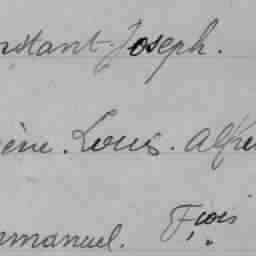 nstant Joseph.
ène. Louis. Alfre
mmanuel. Fçois